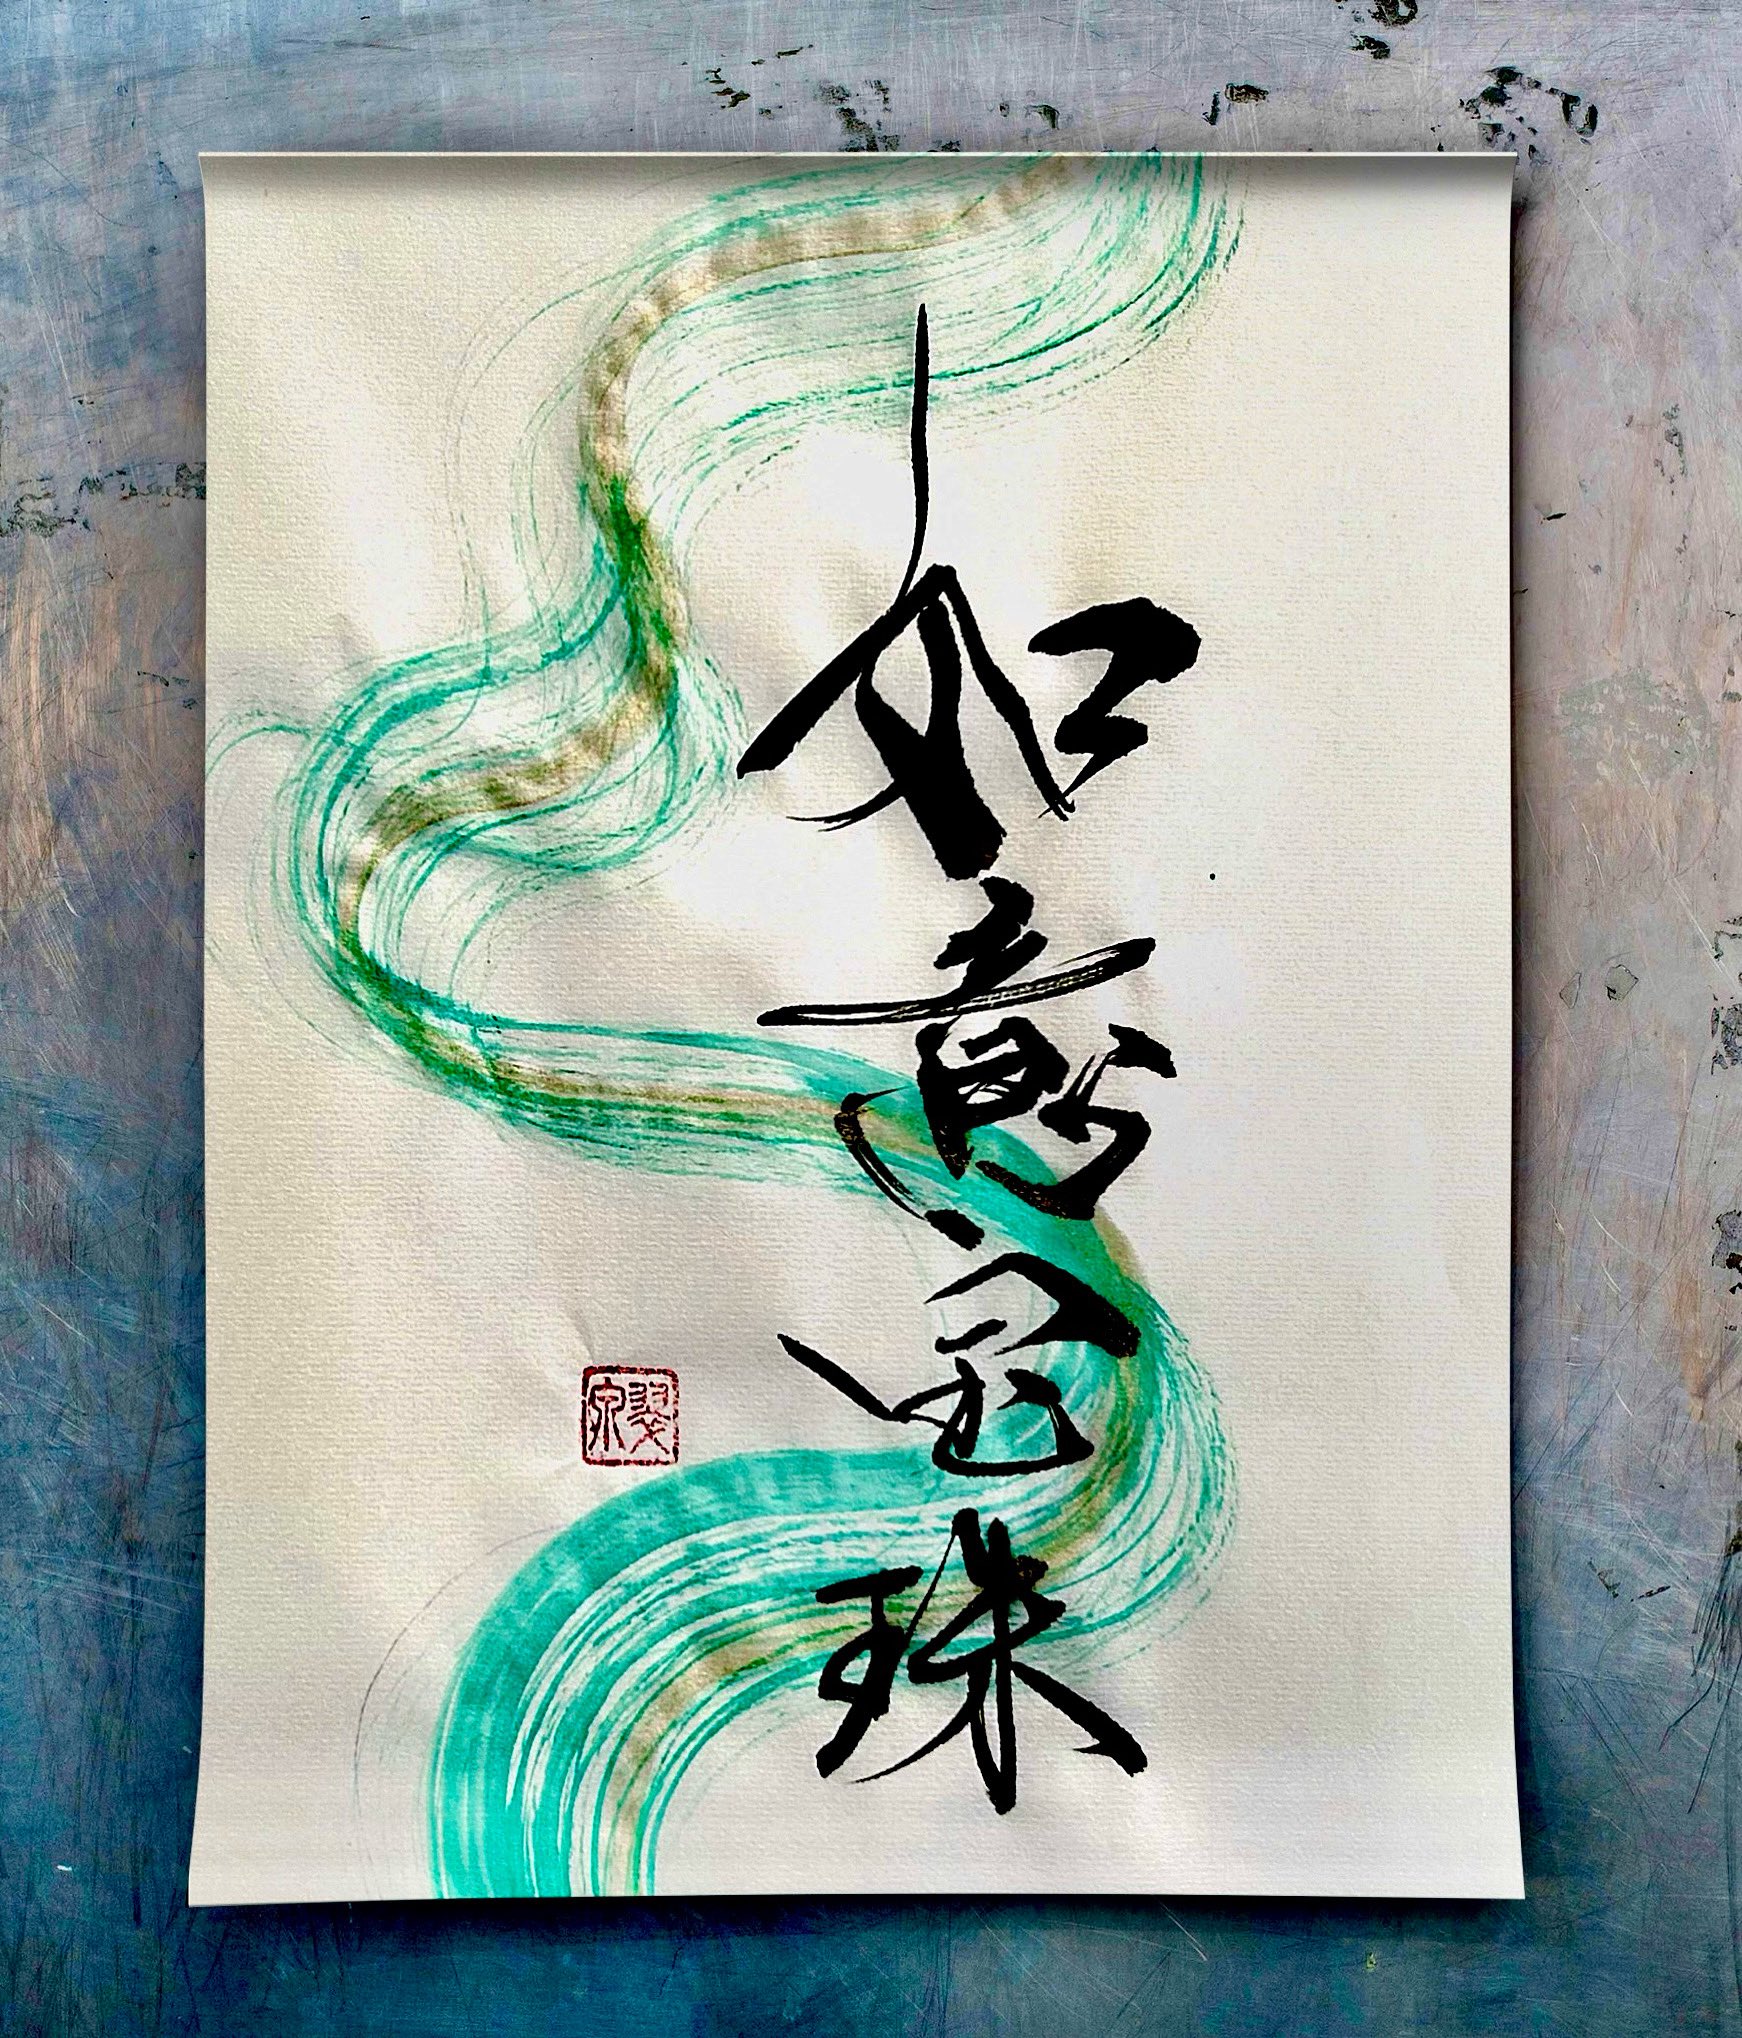 如意宝珠
翠泉